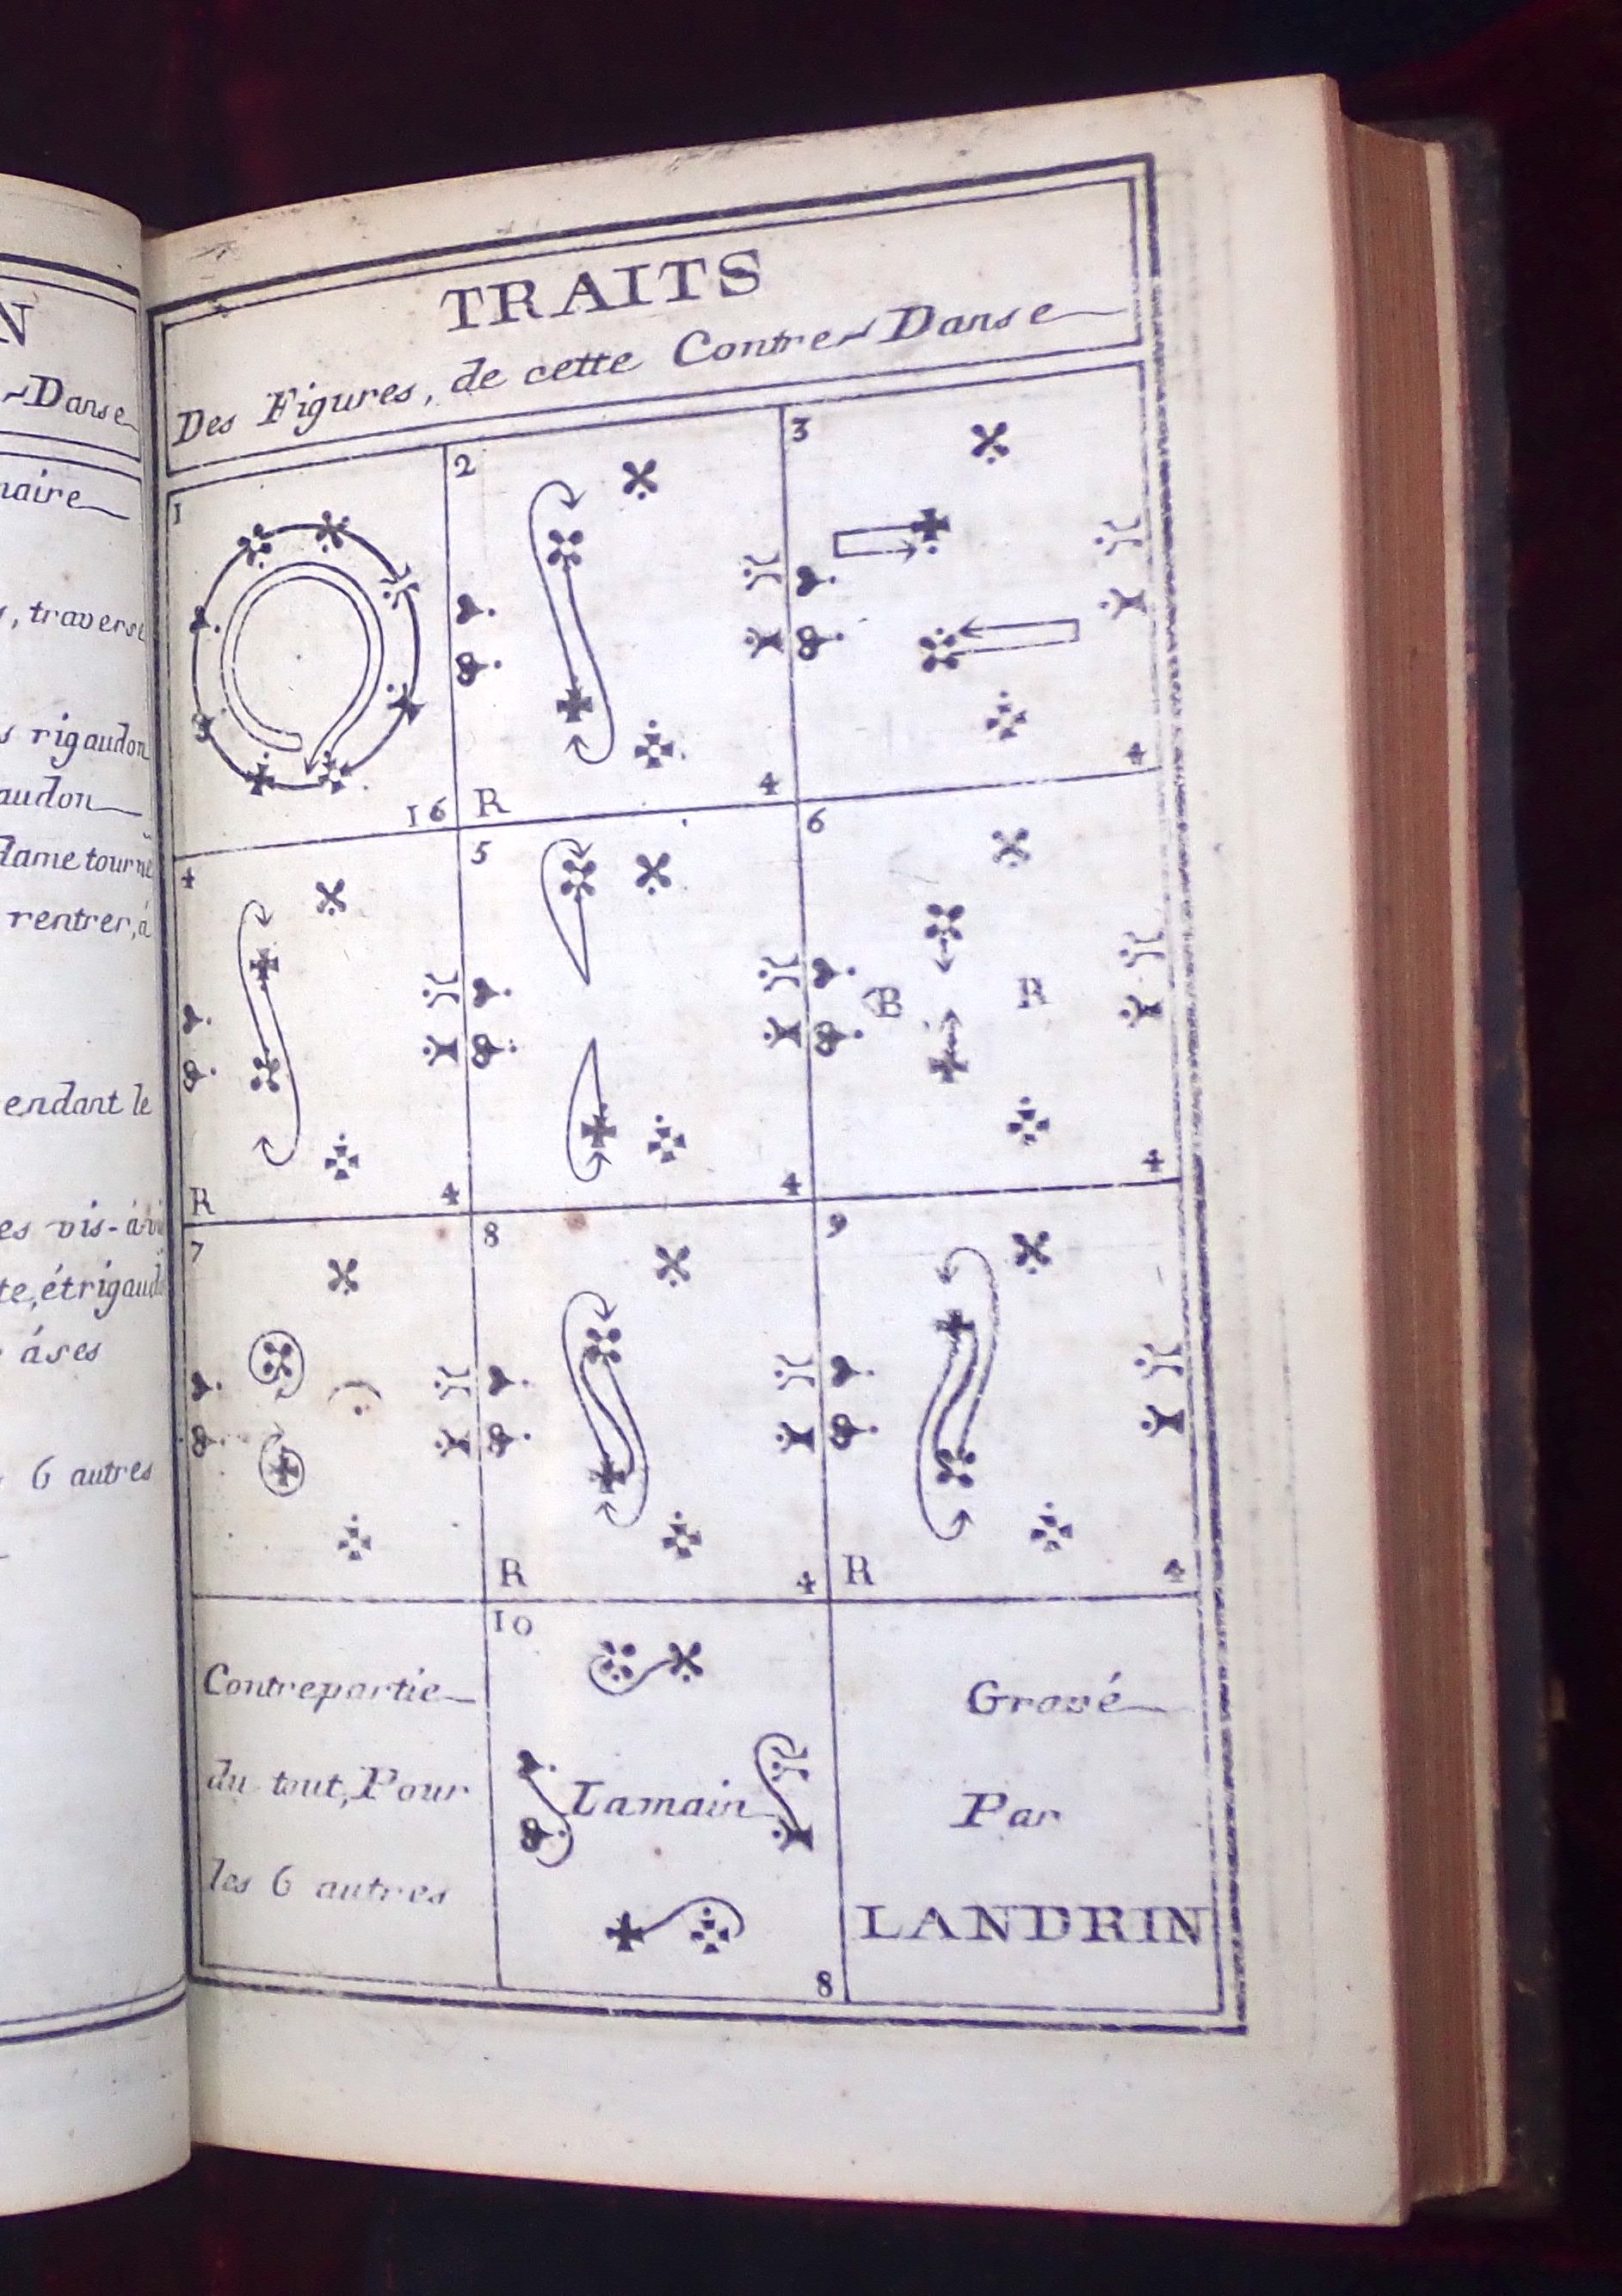 N
Danse
naire
, traverse
s rigaudon
audon
dame tourne
rentrer, á
endant le
es vis-á-vi
te, ét rigaud
áses
6 autres
TRAITS
Des Figures, de cette Contre-Danse
1
16
2
R
4
3
4
4
R
4
5
4
6
B
R
4
7
8
R
4
9
R
4
Contrepartie
du tout, Pour
les 6 autres
10
Lamain
8
Gravé
Par
LANDRIN